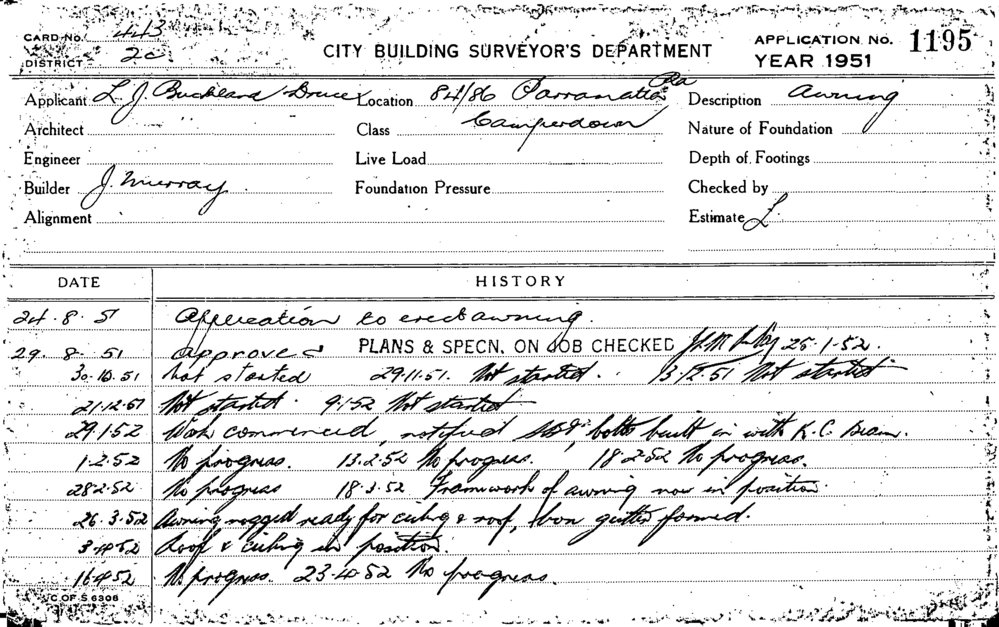 CARD No. 443
DISTRICT 2c
CITY BUILDING SURVEYOR'S DEPARTMENT
APPLICATION No. 1195
YEAR 1951
Applicant L. J. Buckland Druce Location 84/86 Parramatta Rd Description Awning
Architect Class Camperdown Nature of Foundation
Engineer Live Load Depth of Footings
Builder J. Murray Foundation Pressure Checked by
Alignment Estimate £
DATE HISTORY
24.8.51 Application to erect awning.
29.8.51 Approved PLANS & SPECN. ON JOB CHECKED 25.1.52.
30.10.51 Not started 29.11.51. Not started. 13.12.51 Not started
21.12.51 Not started. 9.1.52 Not started
29.1.52 Work commenced, notified bolts built in with R.C. Beam.
1.2.52 No progress. 13.2.52 No progress. 18.2.52 No progress.
28.2.52 No progress 18.3.52 Framework of awning now in position.
26.3.52 Awning rigged ready for ceiling & roof, & box gutter formed.
3.4.52 Roof & ceiling in position.
16.4.52 No progress. 23.4.52 No progress.
C OF S 6306